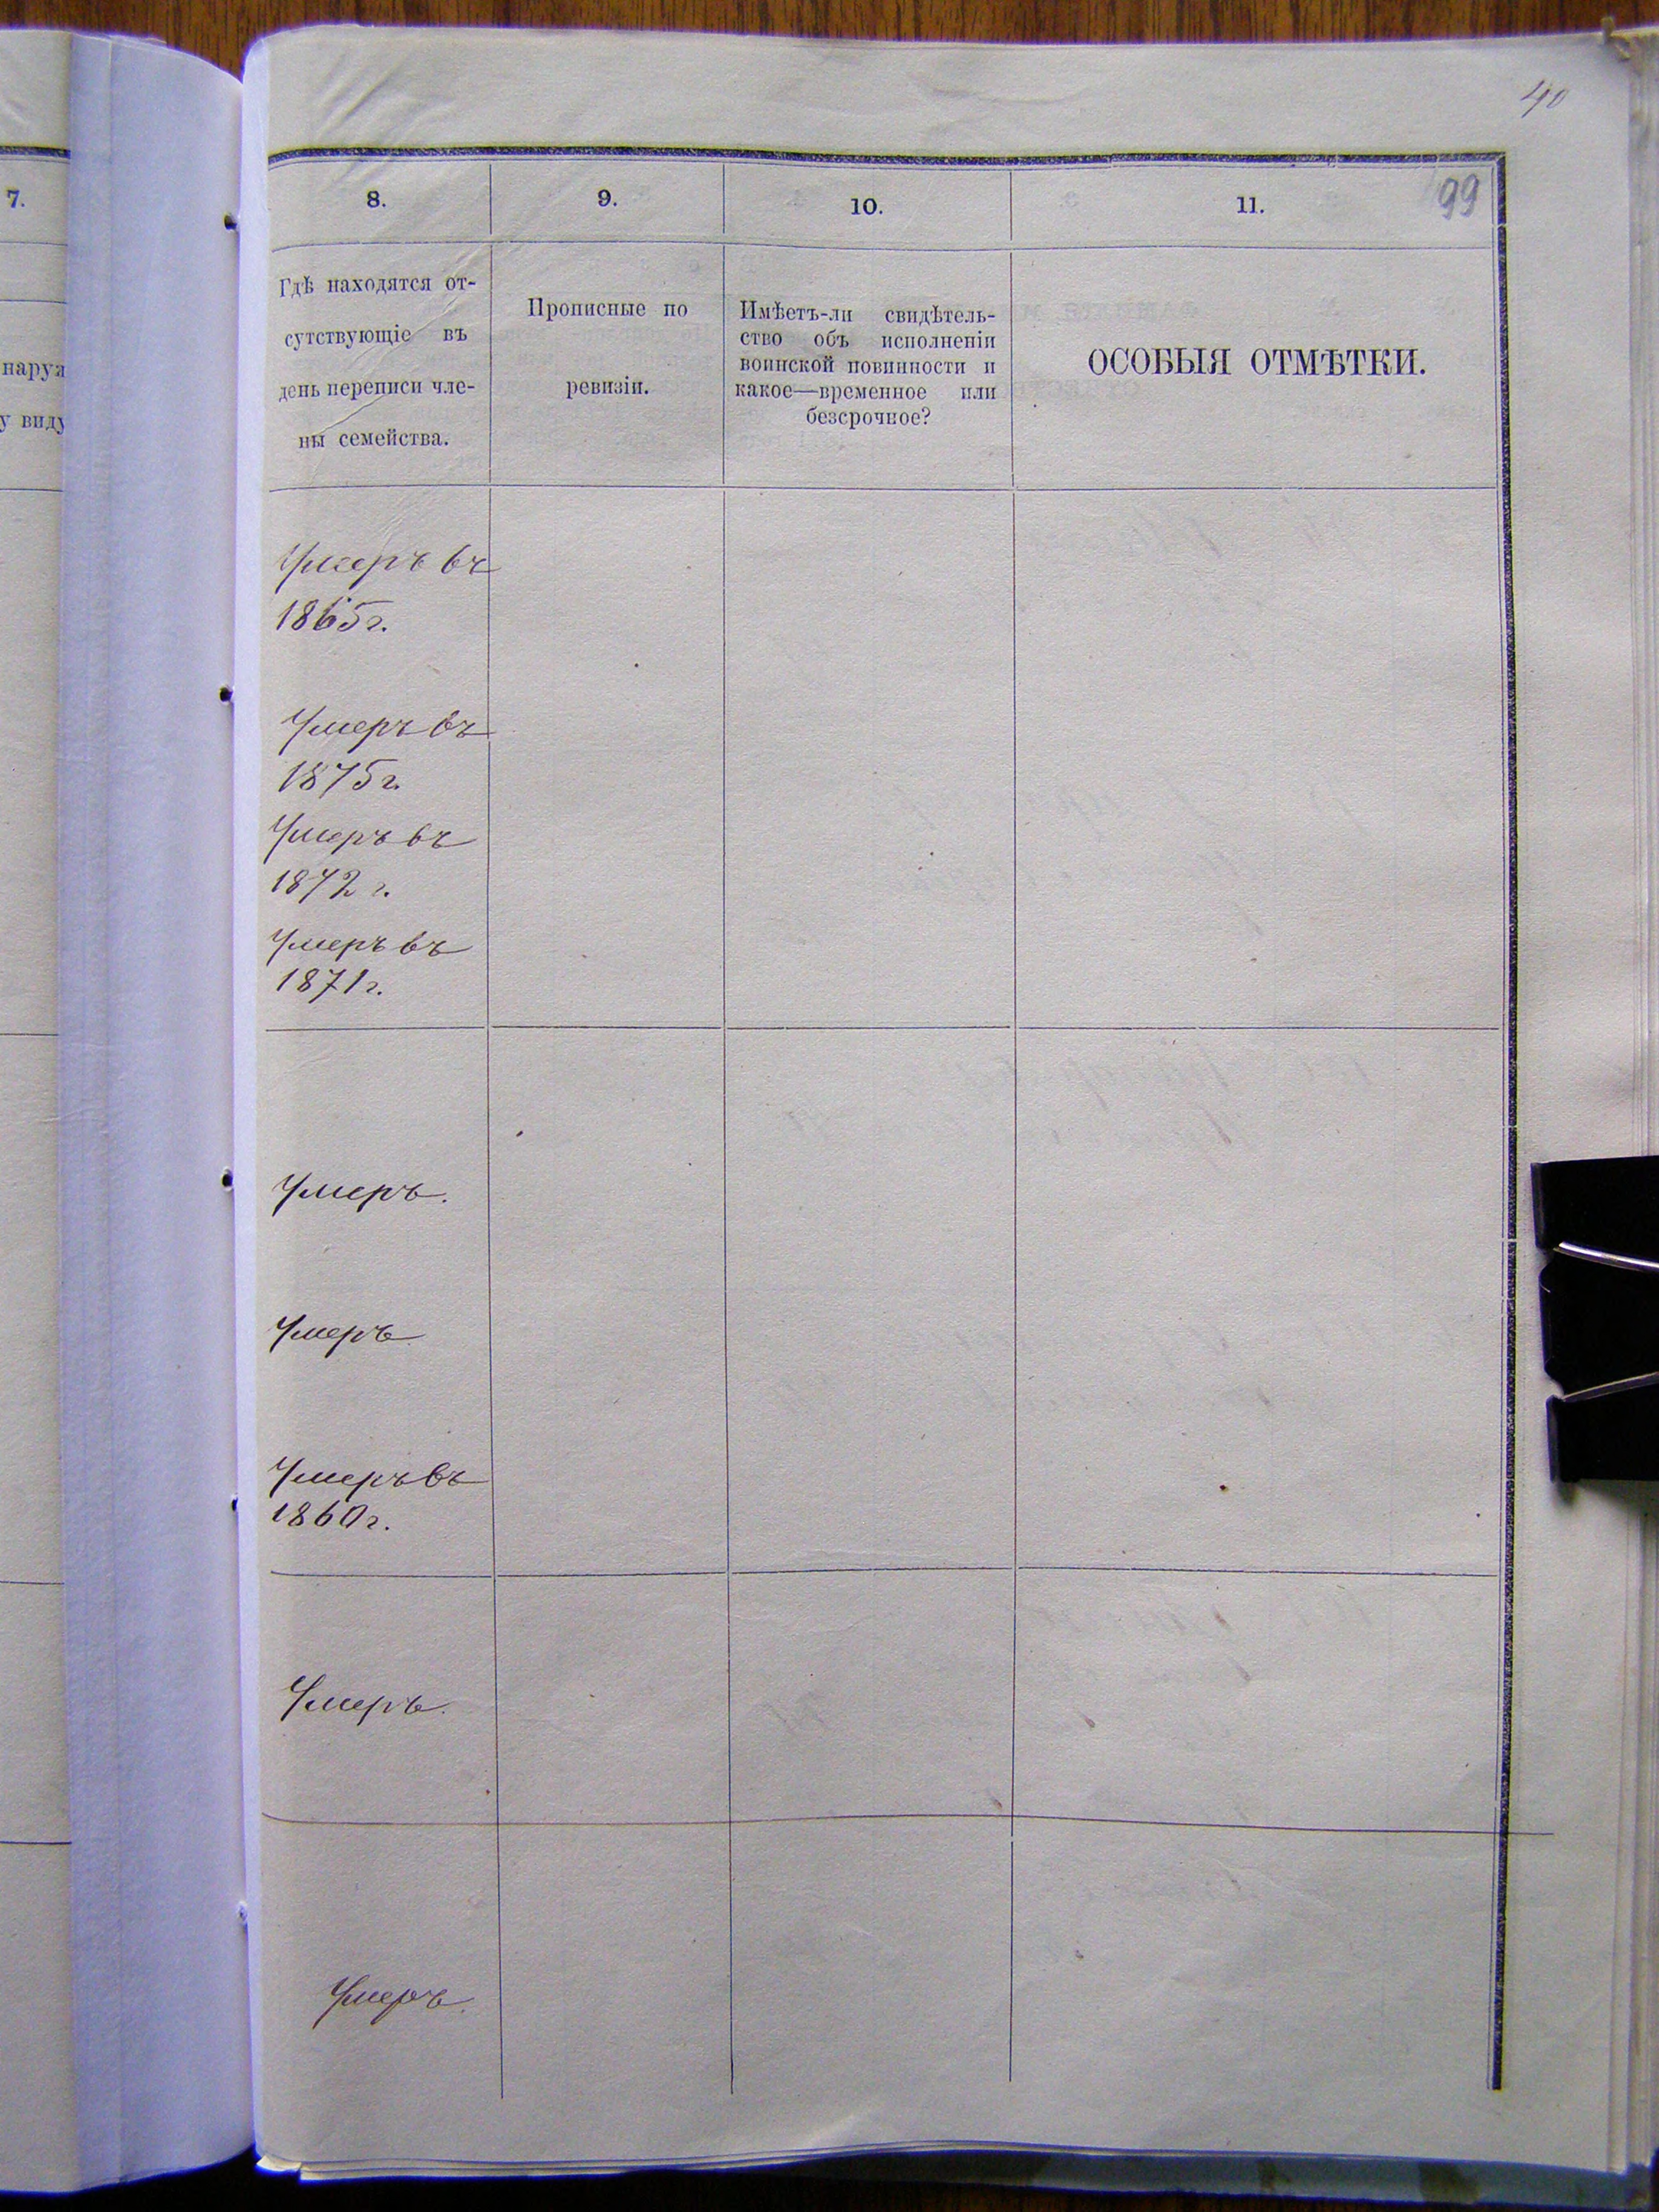 40
7.
8.
9.
10.
11.
99
наруж
у виду
Гдѣ находятся от-
сутствующіе въ
день переписи чле-
ны семейства.
Прописные по
ревизіи.
Имѣетъ-ли свидѣтель-
ство объ исполненіи
воинской повинности и
какое—временное или
безсрочное?
ОСОБЫЯ ОТМѢТКИ.
Умеръ въ
1865 г.
Умеръ въ
1875 г.
Умеръ въ
1872 г.
Умеръ въ
1871 г.
Умеръ.
Умеръ
Умеръ въ
1860 г.
Умеръ.
Умеръ.